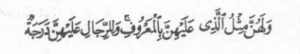 وَلَهُنَّ مِثْلُ الَّذِى عَلَيْهِنَّ بِالْمَعْرُوفِ وَلِلرِّجَالِ عَلَيْهِنَّ دَرَجَةٌ